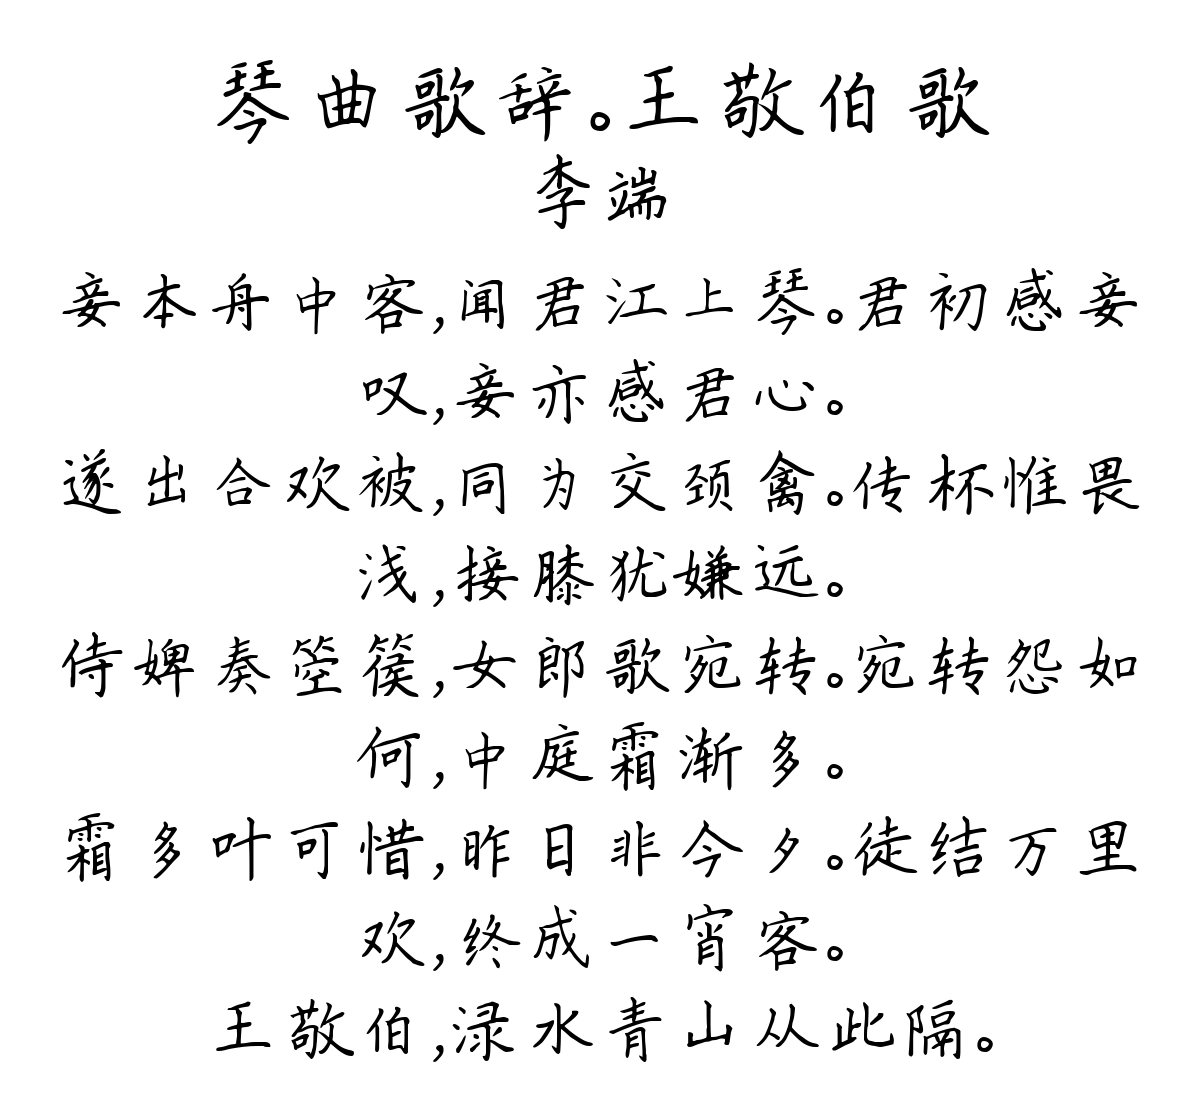 琴曲歌辞。王敬伯歌
李端
妾本舟中客,闻君江上琴。君初感妾
叹,妾亦感君心。
遂出合欢被,同为交颈禽。传杯惟畏
浅,接膝犹嫌远。
侍婢奏箜篌,女郎歌宛转。宛转怨如
何,中庭霜渐多。
霜多叶可惜,昨日非今夕。徒结万里
欢,终成一宵客。
王敬伯,渌水青山从此隔。